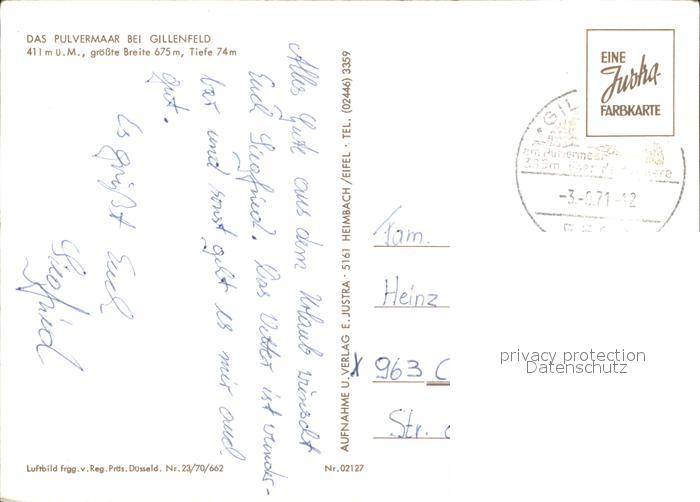 DAS PULVERMAAR BEI GILLENFELD
411 m ü.M., größte Breite 675 m, Tiefe 74 m
Alles Gute aus dem Urlaub wünscht
Euch Siegfried. Das Wetter ist wunder-
bar und sonst geht es mir auch
gut.
Es grüßt Euch
Siegfried
Luftbild frgg.v.Reg.Präs.Düsseld. Nr.23/70/662
Nr.02127
AUFNAHME U. VERLAG E. JUSTRA · 5161 HEIMBACH/EIFEL · TEL. (02446) 3359
EINE
Justra-
FARBKARTE
GIL
am Pulvermaar
-3.-8.71-12
Fam.
Heinz
963
Str.
privacy protection
Datenschutz